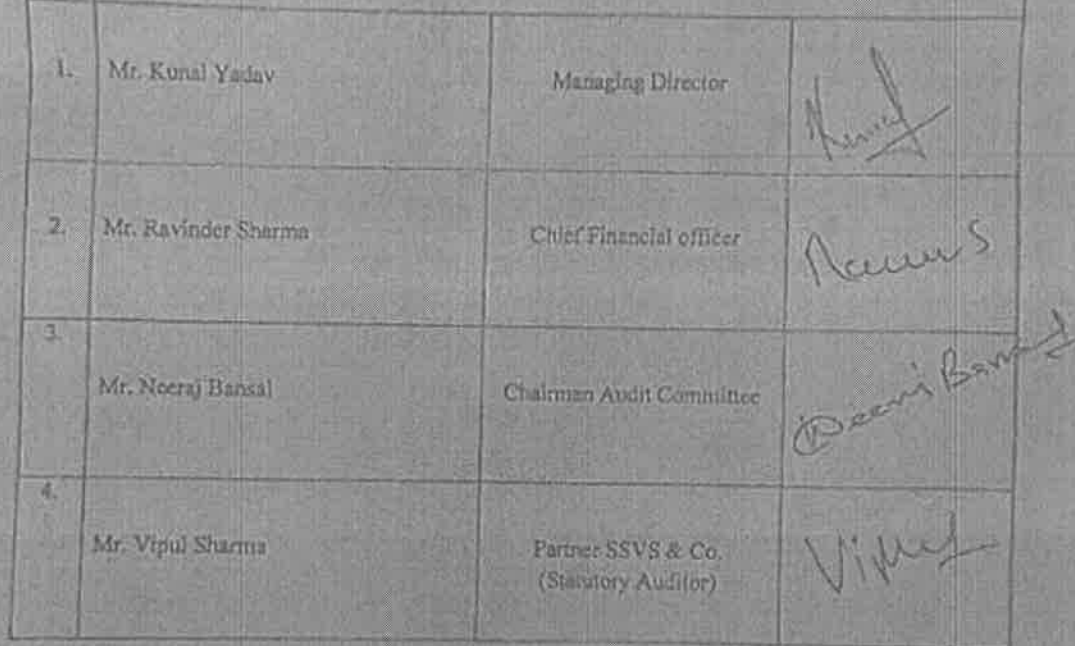 1. Mr. Kunal Yadav Managing Director
2. Mr. Ravinder Sharma Chief Financial officer
3.
Mr. Neeraj Bansal Chairman Audit Committee
4.
Mr. Vipul Sharma Partner SSVS & Co.
(Statutory Auditor)